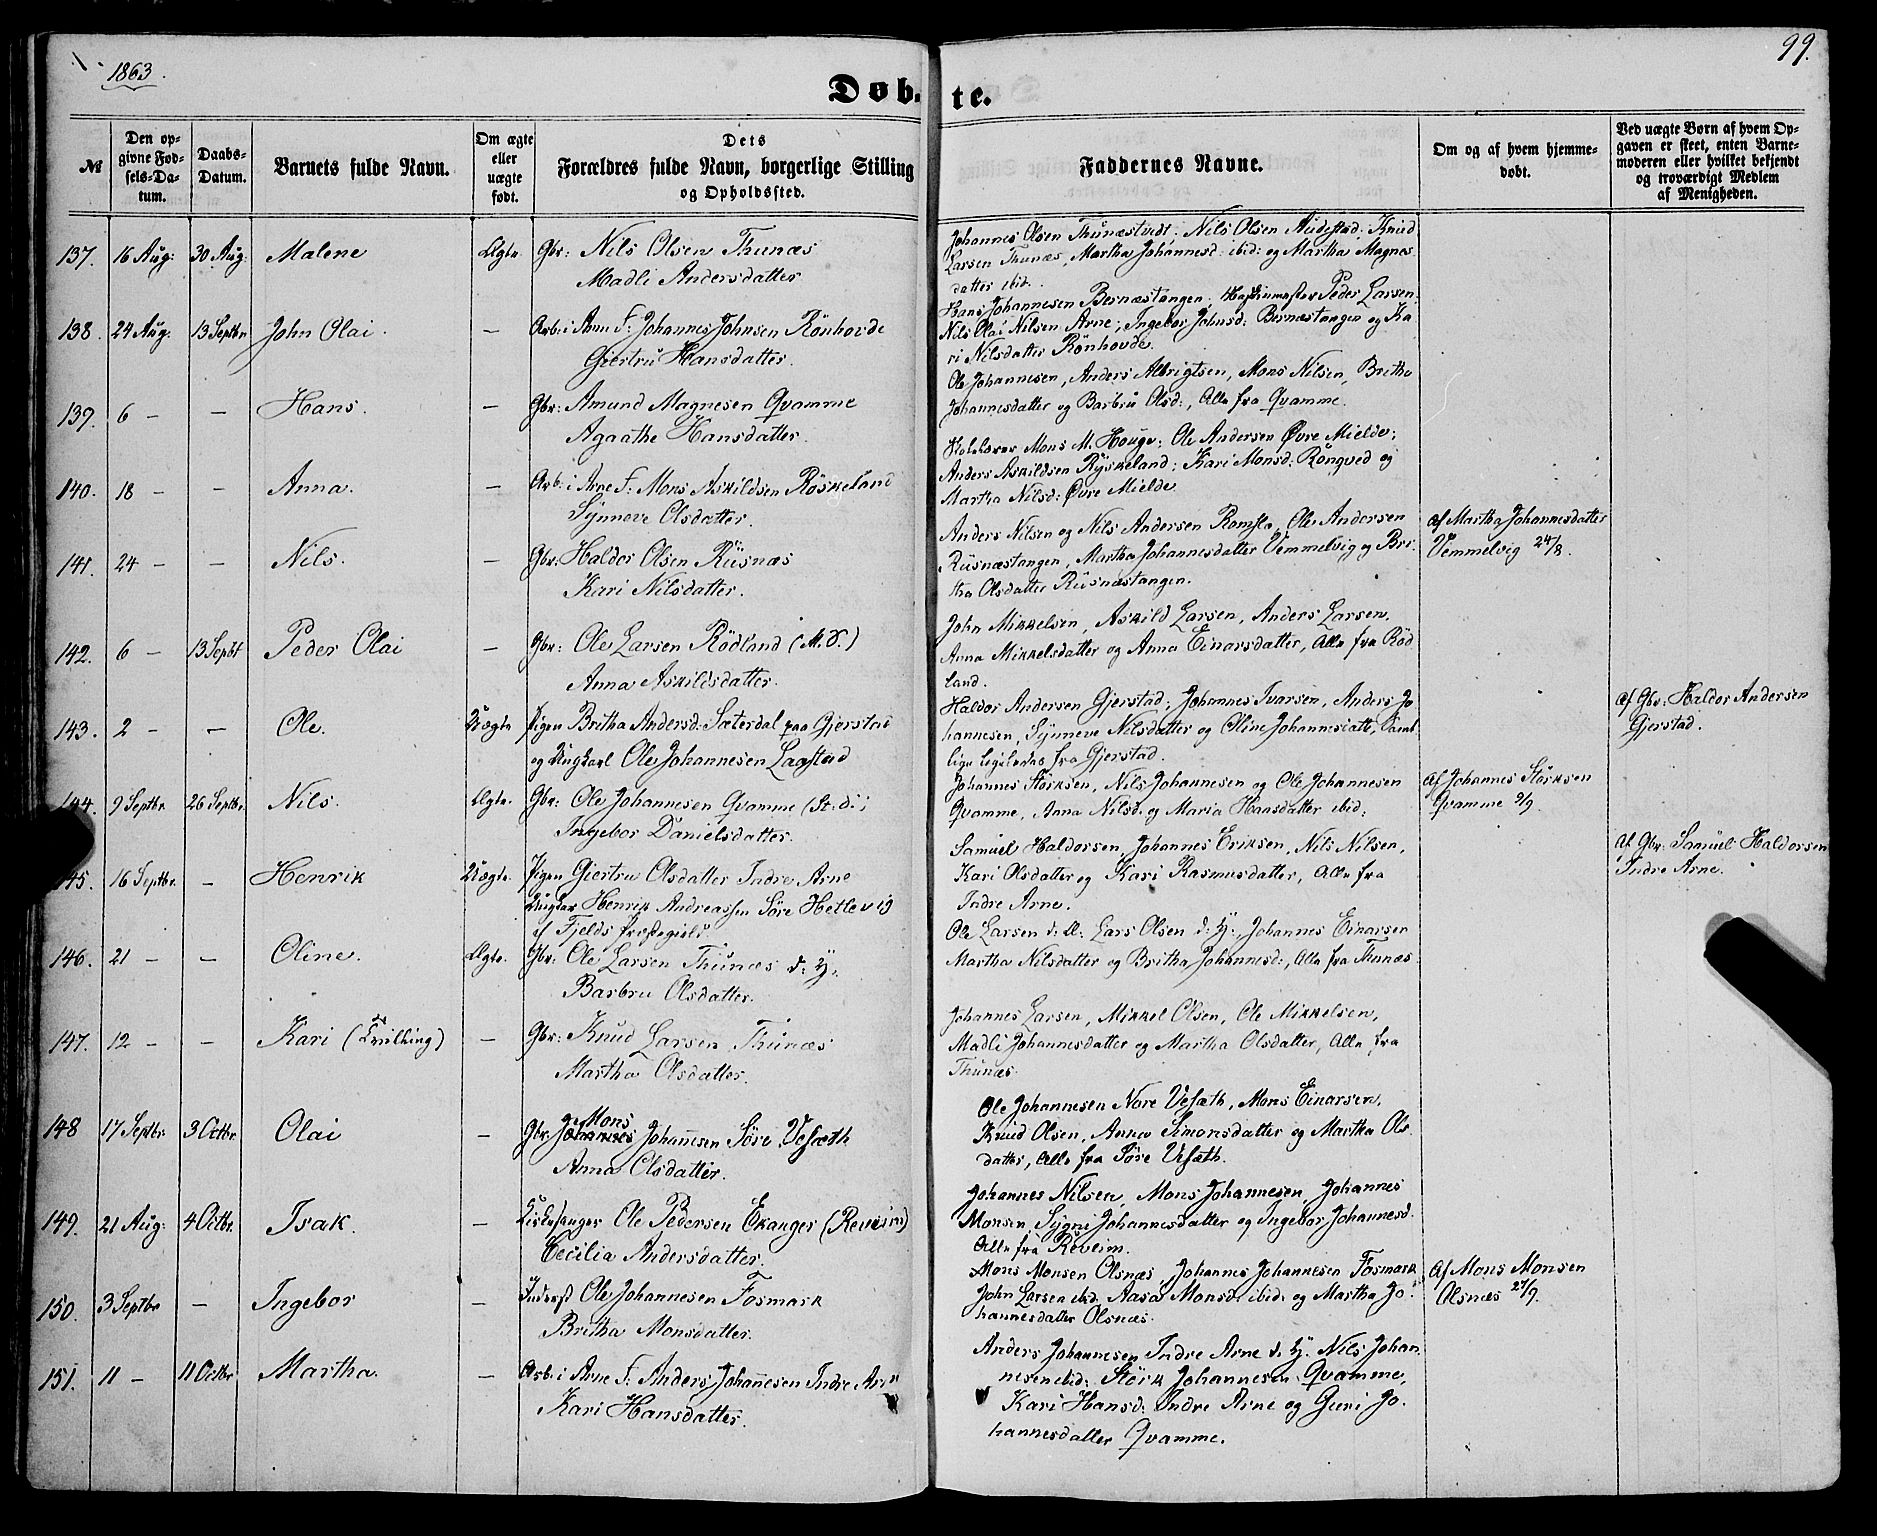 1863.
99.
Døb-te.
№
Den opgivne Fødsels-Datum.
Daabs-Datum.
Barnets fulde Navn.
Om ægte eller uægte født.
Dets Forældres fulde Navn, borgerlige Stilling og Opholdssted.
Faddernes Navne.
Om og af hvem hjemmedøbt.
Ved uægte Børn af hvem Opgaven er skeet, enten Barnemoderen eller hvilket bekjendt og troværdigt Medlem af Menigheden.
137. 16 Aug: 30 Aug: Malene Ægte. Gbr: Nils Olsen Thunæs
Madli Andersdatter
Johannes Olsen Thunæstvedt. Nils Olsen Audestad. Knud
Larsen Thunæs, Martha Johannesd: ibid: og Martha Magnes
datter ibid.
138. 24 Aug: 13 Septbr John Olai. — Arb: i Arne F: Johannes Johnsen Rönhovde
Gjertru Hansdatter.
Hans Johannesen Bernæstangen, Peder Larsen.
Nils Olai Nilsen Arne, Ingebor Johnsd: Bernæstangen og Ka
ri Nilsdatter Rönhovde.
139. 6 — — Hans. — Gbr: Amund Magnesen Qvamme
Agaathe Hansdatter.
Ole Johannesen, Anders Albrigtsen, Mons Nilsen, Britha
Johannesdatter og Barbru Olsd:, Alle fra Qvamme.
140. 18 — — Anna. — Arb: i Arne F: Mons Askildsen Röskeland
Synneve Olsdatter.
Mons M. Houge; Ole Andersen Övre Mielde;
Anders Askildsen Ryskeland; Kari Monsd: Rongved og
Martha Nilsd: Övre Mielde
141. 24 — — Nils. — Gbr: Haldor Olsen Rusnæs
Kari Nilsdatter.
Anders Nilsen og Nils Andersen Romsla, Ole Andersen
Rusnæstangen, Martha Johannesdatter Vemmelvig og Bri
tha Olsdatter Rusnæstangen.
af Martha Johannesdatter
Vemmelvig 24/8.
142. 6 — 13 Septbr Peder Olai — Gbr: Ole Larsen Rödland (M.S.)
Anna Askildsdatter.
John Mikkelsen, Askild Larsen, Anders Larsen,
Anna Mikkelsdatter og Anna Einarsdatter, Alle fra Röd
land.
143. 2 — — Ole. Uægte Pigen Britha Andersd: Sæterdal paa Gjerstad
og Ungkarl Ole Johannesen Laastad
Haldor Andersen Gjerstad, Johannes Ivarsen, Anders Jo
hannesen, Synneve Nilsdatter og Oline Johannesdatt, Samt
lige fra Gjerstad.
Af Gbr: Haldor Andersen
Gjerstad.
144. 9 Septbr 26 Septbr. Nils. Ægte. Gbr: Ole Johannesen Qvamme (St: d:)
Ingebor Danielsdatter.
Johannes Störksen, Nils Johannesen og Ole Johannesen
Qvamme, Anna Nilsd: og Maria Hansdatter ibid:
Af Johannes Störksen
Qvamme 9/9.
145. 16 Septbr. — Henrik Uægte. Pigen Gjertru Olsdatter Indre Arne
Ungkar Henrik Andreassen Söre Hetlevig
i Fjelds Præstegield.
Samuel Haldorsen, Johannes Eriksen, Nils Nilsen,
Kari Olsdatter og Kari Rasmusdatter, Alle fra
Indre Arne.
Af Gbr: Samuel Haldorsen
Indre Arne.
146. 21 — — Oline. Ægte. Gbr: Ole Larsen Thunæs d: y.
Barbru Olsdatter.
Ole Larsen d: Æ: Lars Olsen d: y: Johannes Einarsen
Martha Nilsdatter og Britha Johannesd:, Alle fra Thunæs.
147. 12 — — Kari (Tvilling) — Gbr: Knud Larsen Thunæs
Martha Olsdatter.
Johannes Larsen, Mikkel Olsen, Ole Mikkelsen,
Madli Johannesdatter og Martha Olsdatter, Alle fra
Thunæs.
148 17 Septbr 3 Octbr. Olai — Gbr: Johannes Mons Johannesen Söre Vesæth
Anna Olsdatter.
Ole Johannesen Nore Vesæth, Mons Einarsen,
Knud Olsen, Anna Simonsdatter og Martha Ols
datter, Alle fra Söre Vesæth.
149. 21 Aug: 4 Octbr. Isak. — Kirkesanger Ole Pedersen Ekanger (Reveim)
Cecilia Andersdatter.
Johannes Nilsen, Mons Johannesen, Johannes
Monsen, Sygni Johannesdatter og Ingebor Johannesd.
Alle fra Reveim.
150. 3 Septbr — Ingebor — Inderst Ole Johannesen Fosmark
Britha Monsdatter.
Mons Monsen Olsnæs, Johannes Johannesen Fosmark
John Larsen ibid. Aasa Monsd: ibid: og Martha Jo
hannesdatter Olsnæs.
Af Mons Monsen
Olsnæs 27/9.
151. 11 — 11 Octbr Martha. — Arb: i Arne F. Anders Johannesen Indre Arne
Kari Hansdatter.
Anders Johannesen Indre Arne d. y. Nils Johan
nesen ibid: Störk Johannesen Qvamme,
Kari Hansd: Indre Arne og Guri Jo
hannesdatter Qvamme.